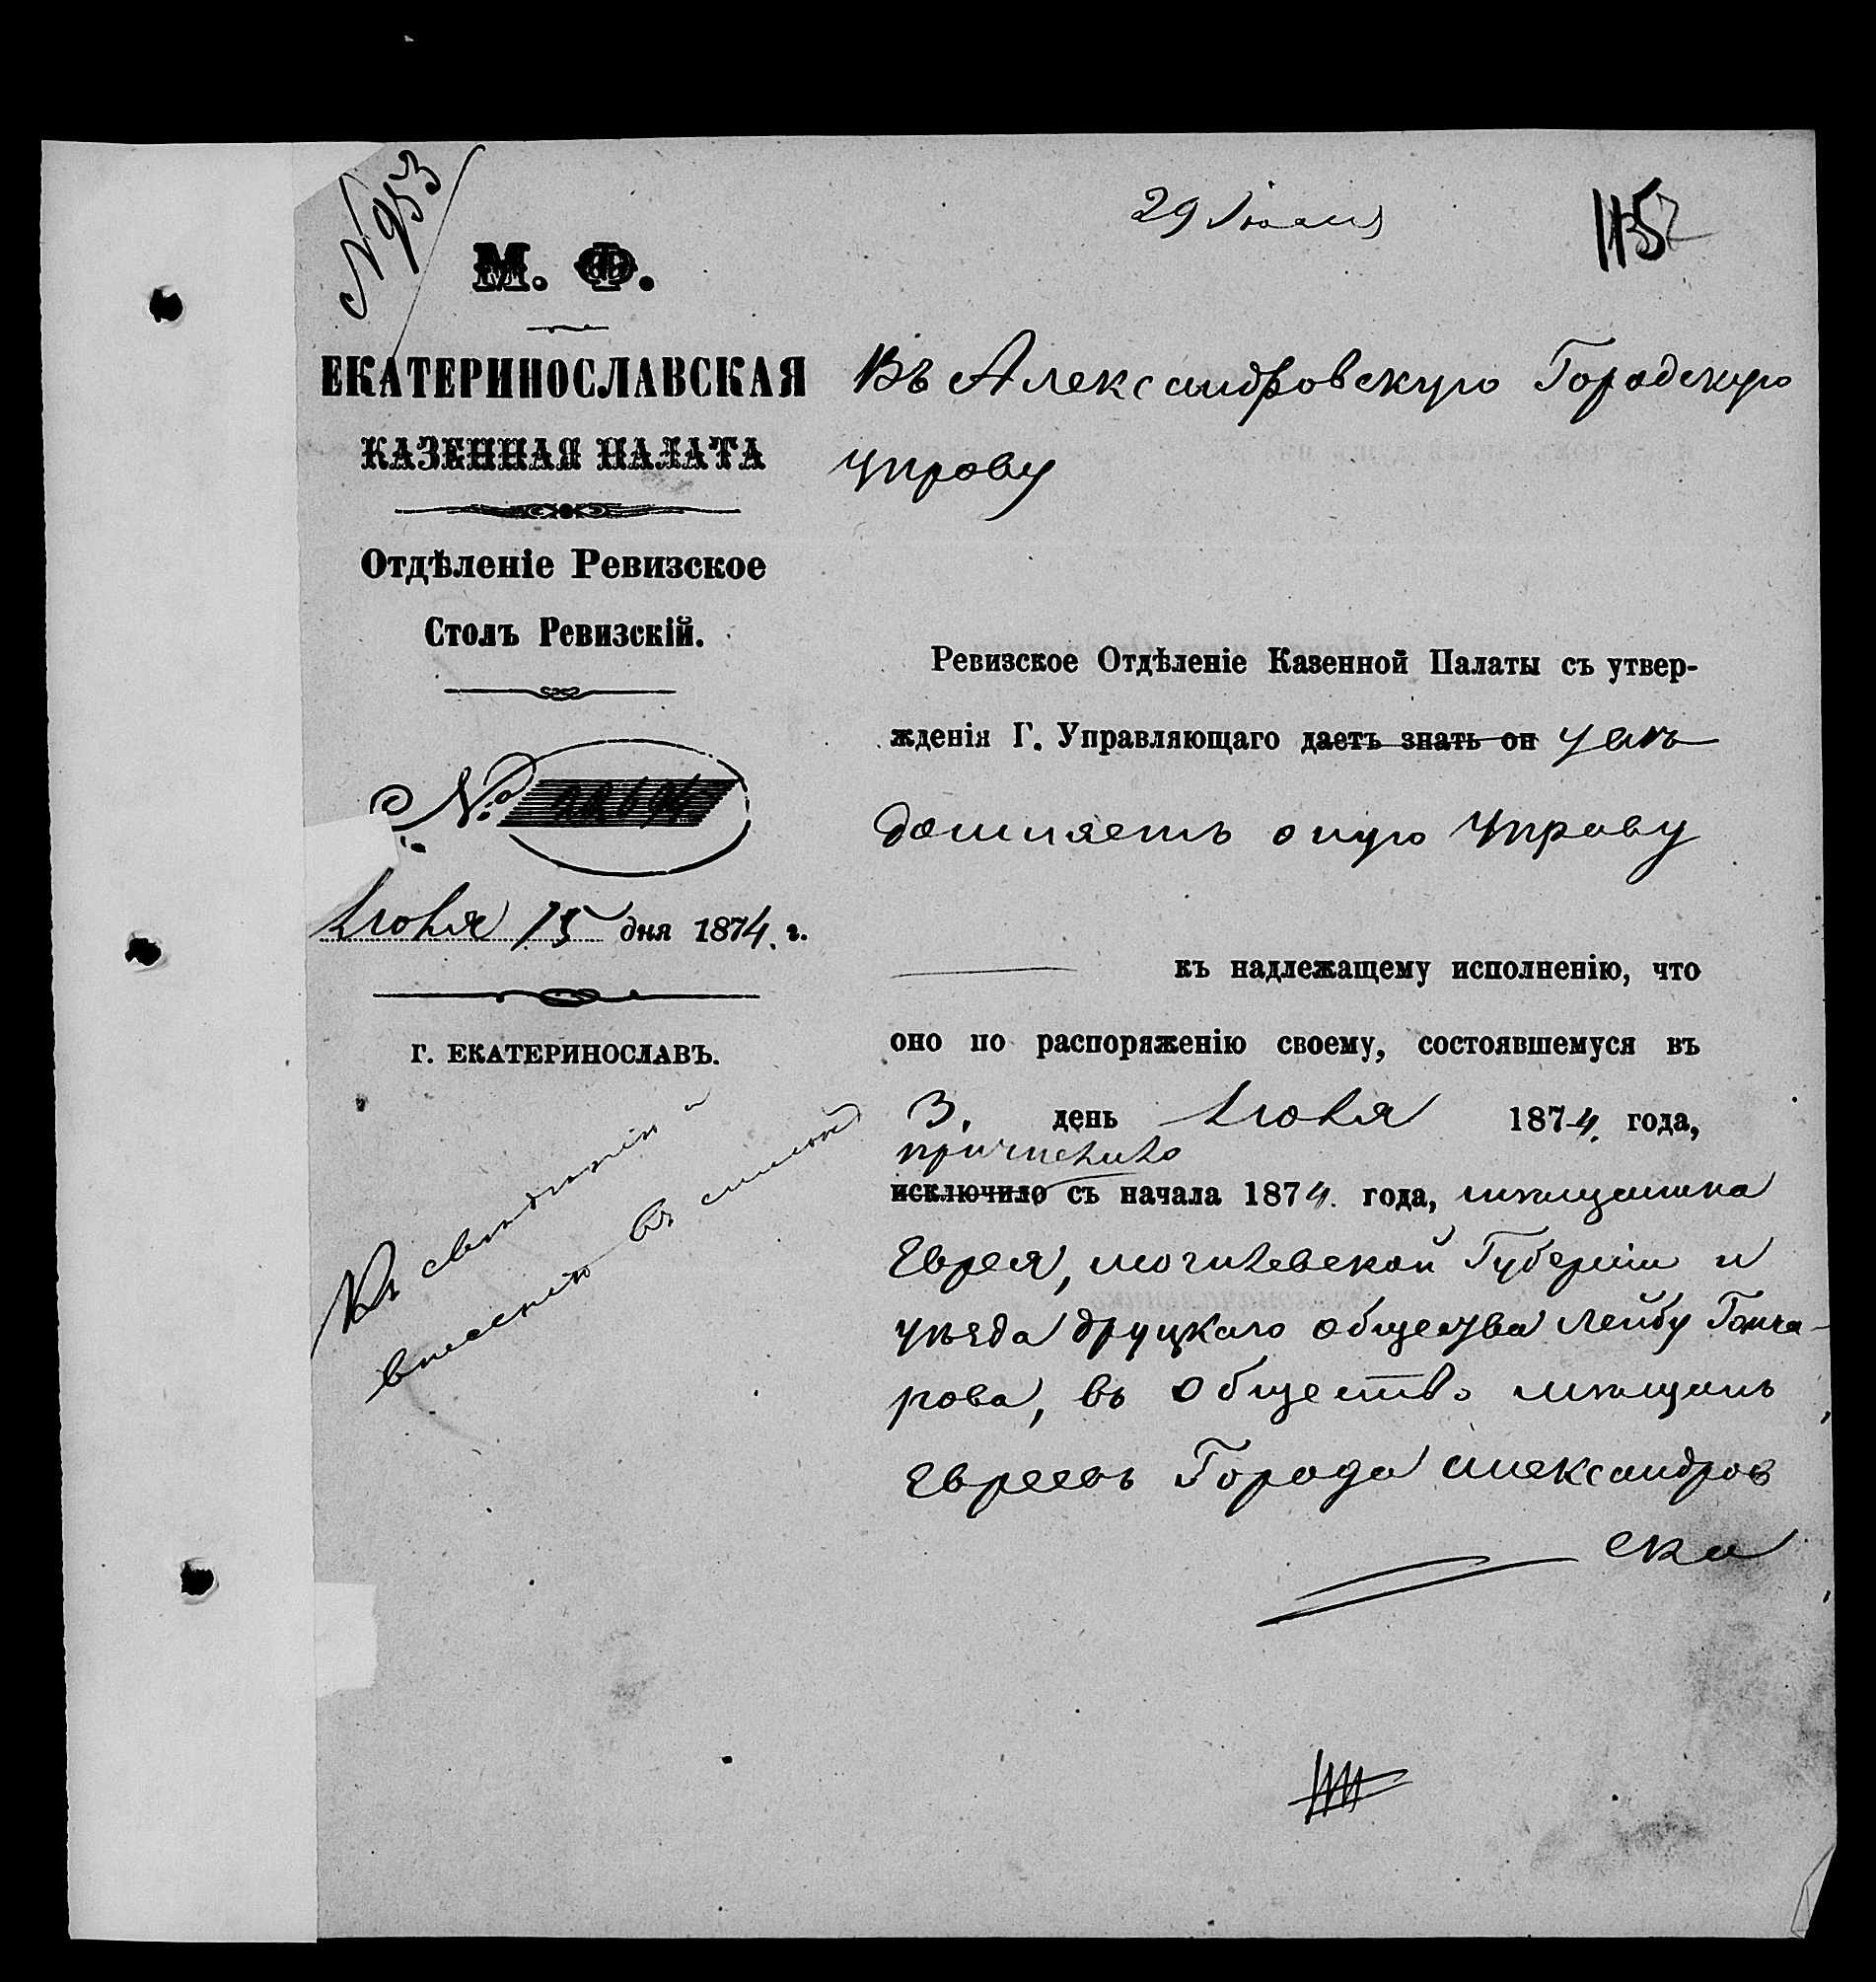 № 953
29 Іюня
М. Ф.
ЕКАТЕРИНОСЛАВСКАЯ
КАЗЕННАЯ ПАЛАТА
Отдѣленіе Ревизское
Столъ Ревизскій.
№
Іюня 15 дня 1874. г.
г. ЕКАТЕРИНОСЛАВЪ.
Къ свѣдѣнію и
внесенію въ списокъ
Въ Александровскую Городскую
Управу
Ревизское Отдѣленіе Казенной Палаты съ утвер-
жденія Г. Управляющаго даетъ знать он увѣ
домляетъ оную Управу
къ надлежащему исполненію, что
оно по распоряженію своему, состоявшемуся въ
3. день Іюня 1874. года,
причислило
исключило съ начала 1874. года, мѣщанина
Еврея, могилевской Губерніи и
уѣзда друцкаго общества Лейбу Гонча-
рова, въ общество мѣщанъ
Евреевъ Города Александров
ска